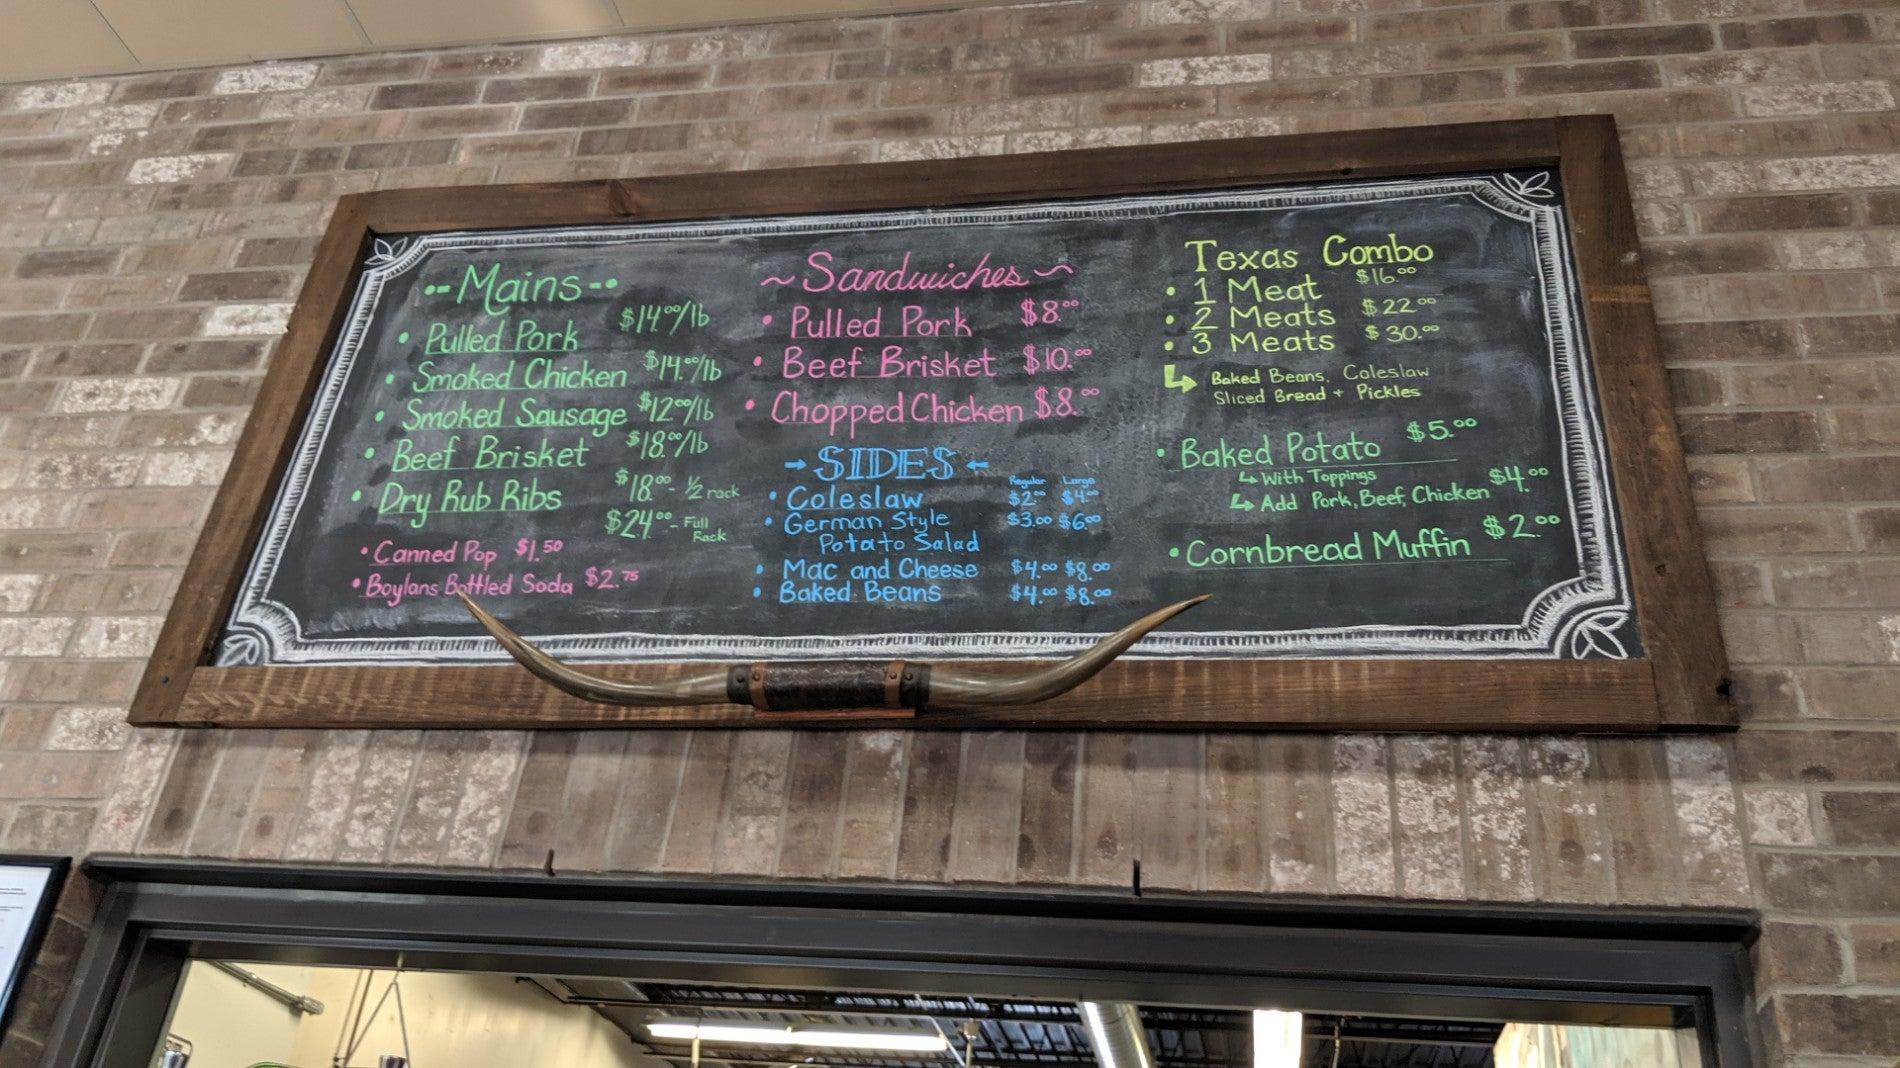 Mains
Pulled Pork $14.00/lb
Smoked Chicken $14.00/lb
Smoked Sausage $12.00/lb
Beef Brisket $18.00/lb
Dry Rub Ribs $18.00 - 1/2 rack
$24.00 - Full Rack
Canned Pop $1.50
Boylans Bottled Soda $2.75
~Sandwiches~
Pulled Pork $8.00
Beef Brisket $10.00
Chopped Chicken $8.00
SIDES
Regular Large
Coleslaw $2.00 $4.00
German Style $3.00 $6.00
Potato Salad
Mac and Cheese $4.00 $8.00
Baked Beans $4.00 $8.00
Texas Combo
1 Meat $16.00
2 Meats $22.00
3 Meats $30.00
Baked Beans, Coleslaw
Sliced Bread + Pickles
Baked Potato $5.00
With Toppings
Add Pork, Beef, Chicken $4.00
Cornbread Muffin $2.00